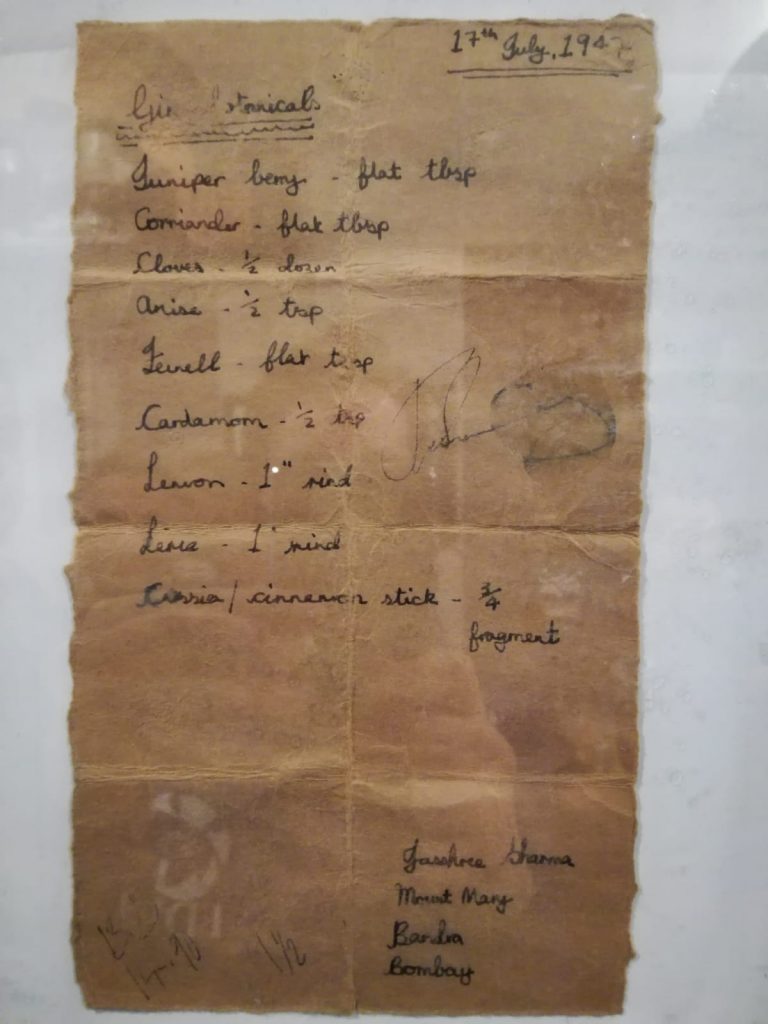 17th July, 194
Botanicals
Juniper berry - flat tbsp
Corriander - flat tbsp
Cloves - ½ dozen
Anise - ½ tsp
Fenell - flat tsp
Cardamom - ½ tsp
Lemon - 1" rind
Lime - 1" rind
Cassia / cinnamon stick - ¾
fragment
Sharma
Mount Mary
Bandra
Bombay
1½